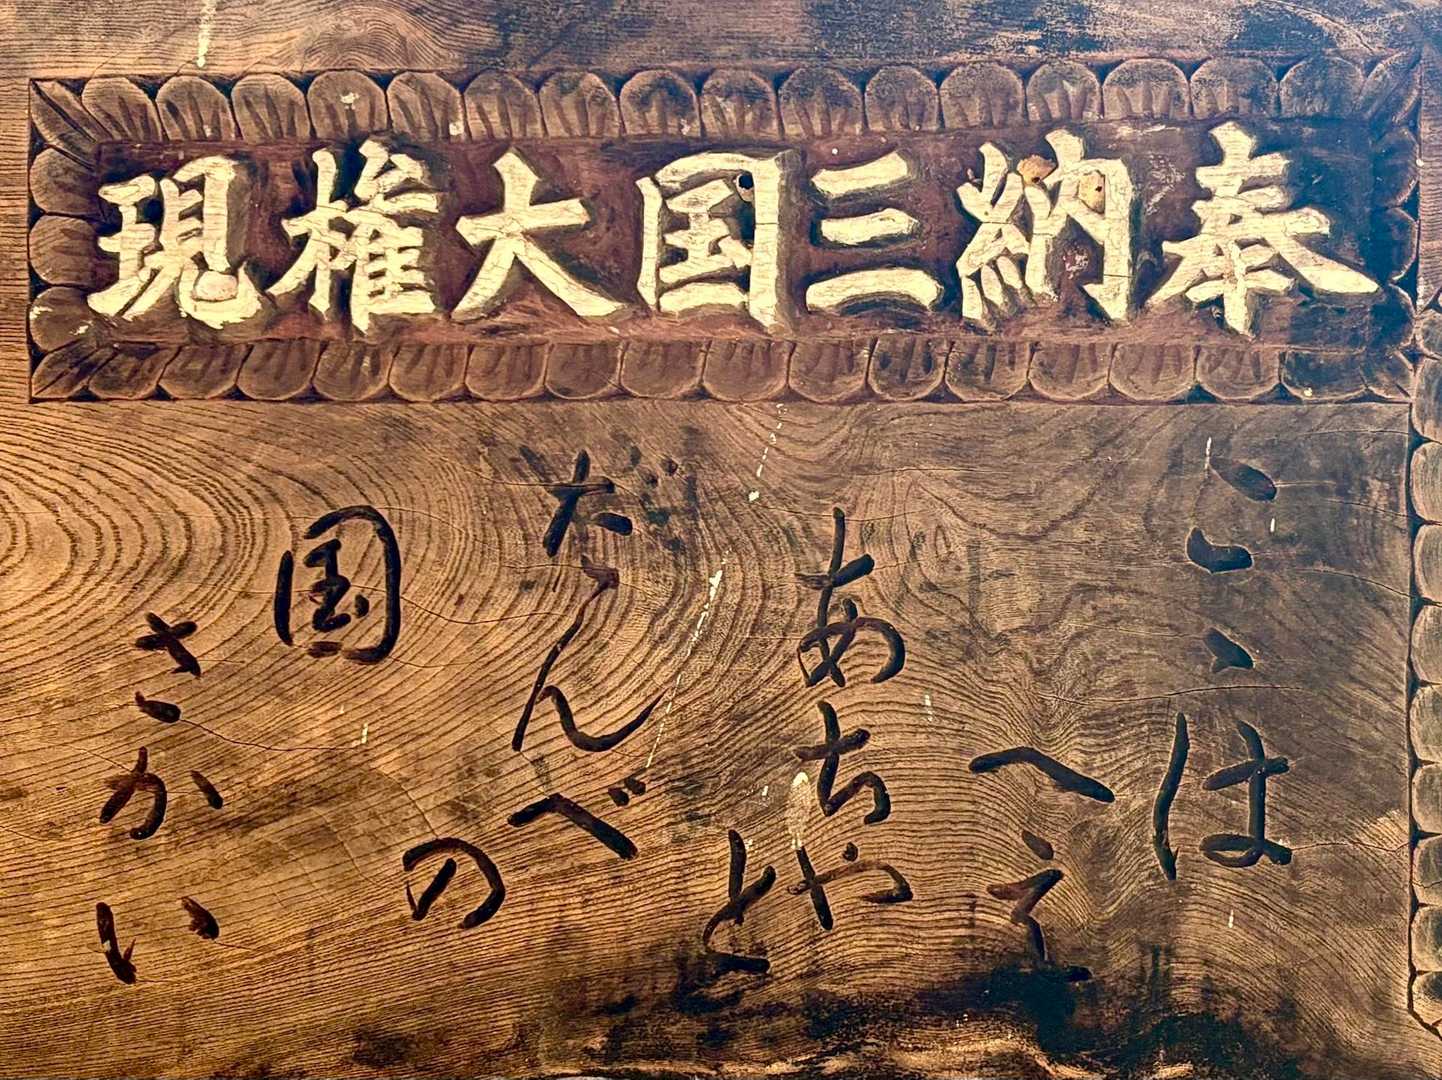 奉納三国大権現
こゝは
へえ
あちや
と
だんべ
の
国
さかい